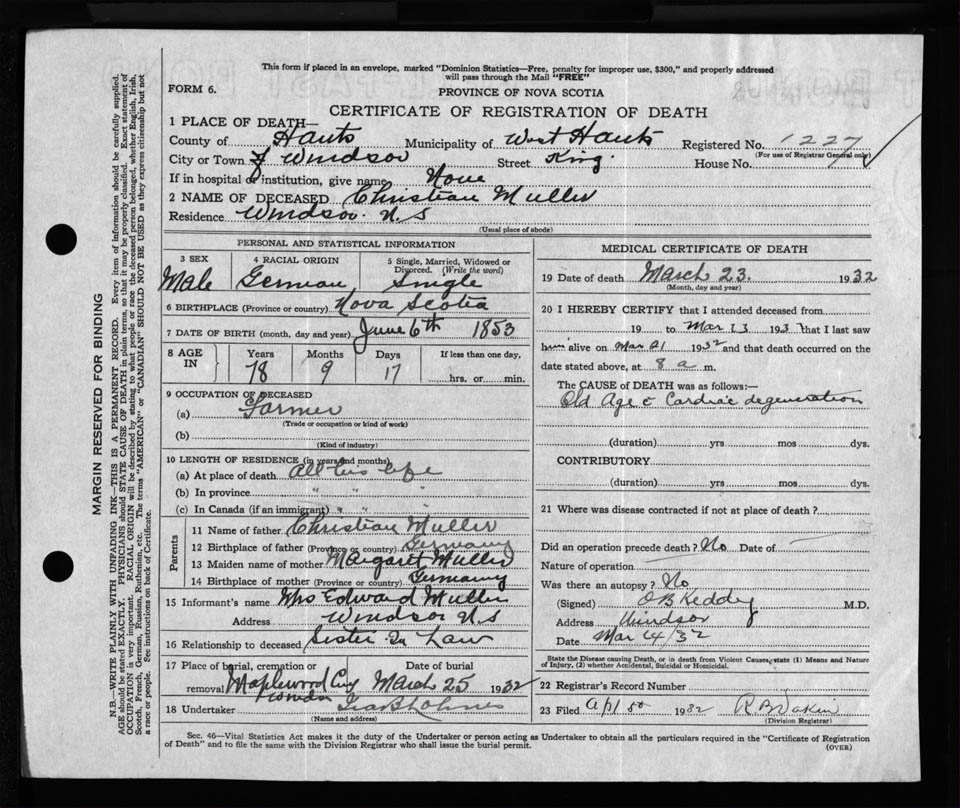 This form if placed in an envelope, marked "Dominion Statistics—Free, penalty for improper use, $300," and properly addressed
will pass through the Mail "FREE"
FORM 6.
PROVINCE OF NOVA SCOTIA
CERTIFICATE OF REGISTRATION OF DEATH
1 PLACE OF DEATH—
County of Hants Municipality of West Hants Registered No. 1227
(For use of Registrar General only)
City or Town of Windsor Street King. House No.
If in hospital or institution, give name None
2 NAME OF DECEASED Christian Muller
Residence Windsor. N.S
(Usual place of abode)
PERSONAL AND STATISTICAL INFORMATION
3 SEX 4 RACIAL ORIGIN 5 Single, Married, Widowed or
Divorced. (Write the word)
Male German Single
6 BIRTHPLACE (Province or country) Nova Scotia
7 DATE OF BIRTH (month, day and year) June 6th 1853
8 AGE IN Years Months Days If less than one day,
78 9 17 hrs. or min.
9 OCCUPATION OF DECEASED
(a) Farmer
(Trade or occupation or kind of work)
(b)
(Kind of industry)
10 LENGTH OF RESIDENCE (in years and months)
(a) At place of death All his life
(b) In province " " "
(c) In Canada (if an immigrant) " " "
Parents
11 Name of father Christian Muller
12 Birthplace of father (Province or country) Germany
13 Maiden name of mother Margaret Muller
14 Birthplace of mother (Province or country) Germany
15 Informant's name Mrs Edward Muller
Address Windsor N.S
16 Relationship to deceased Sister In Law
17 Place of burial, cremation or Date of burial
removal Maplewood Cmy March 25 1932
Windsor
18 Undertaker
(Name and address)
MEDICAL CERTIFICATE OF DEATH
19 Date of death March 23. 1932
(Month, day and year)
20 I HEREBY CERTIFY that I attended deceased from
19 to Mar 23 1932 that I last saw
him alive on Mar 21 1932 and that death occurred on the
date stated above, at 8 a m.
The CAUSE OF DEATH was as follows:—
Old Age & Cardiac degeneration
(duration) yrs mos dys.
CONTRIBUTORY
(duration) yrs mos dys.
21 Where was disease contracted if not at place of death?
Did an operation precede death? No Date of
Nature of operation
Was there an autopsy? No
(Signed) O B Keddy M.D.
Address Windsor
Date Mar 24/32
State the Disease causing Death, or in death from Violent Causes, state (1) Means and Nature
of Injury, (2) whether Accidental, Suicidal or Homicidal.
22 Registrar's Record Number
23 Filed Apl 1932
(Division Registrar)
Sec. 46—Vital Statistics Act makes it the duty of the Undertaker or person acting as Undertaker to obtain all the particulars required in the "Certificate of Registration
of Death" and to file the same with the Division Registrar who shall issue the burial permit.
(OVER)
MARGIN RESERVED FOR BINDING
N.B.—WRITE PLAINLY WITH UNFADING INK—THIS IS A PERMANENT RECORD. Every item of information should be carefully supplied.
AGE should be stated EXACTLY. PHYSICIANS should STATE CAUSE OF DEATH in plain terms, so that it may be properly classified. Exact statement of
OCCUPATION is very important. RACIAL ORIGIN will be described by stating to what people or race the deceased person belonged, whether English, Irish,
Scotch, French, German, Russian, Ruthenian, etc. The terms "AMERICAN" or "CANADIAN" SHOULD NOT BE USED as they express citizenship but not
a race or people. See instructions on back of Certificate.